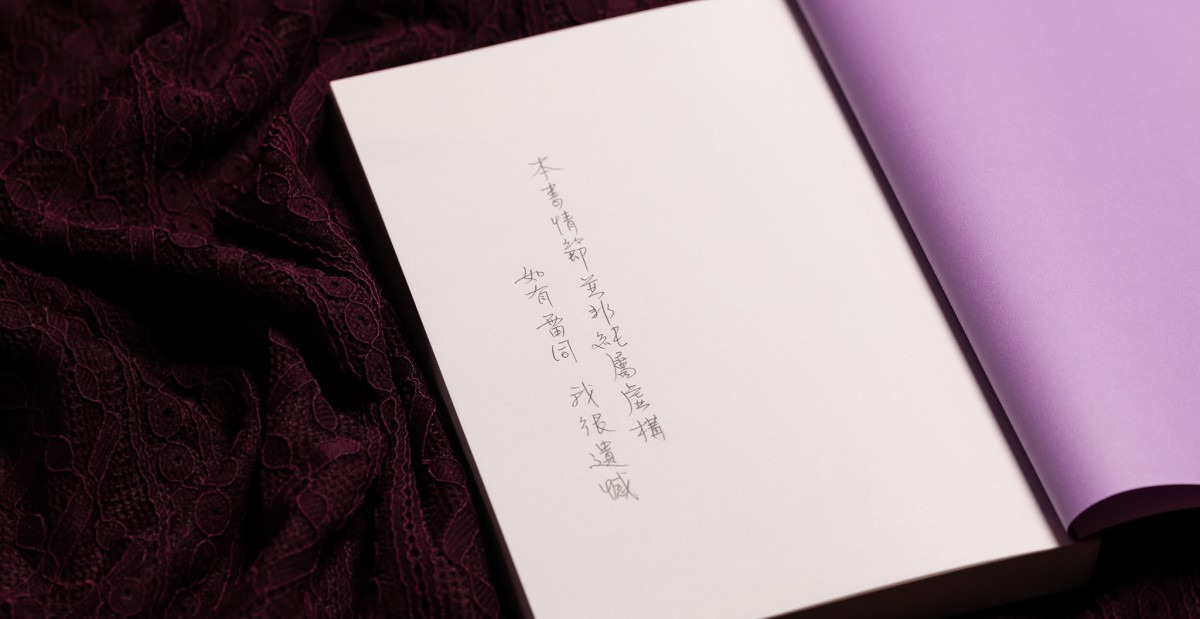 本書情節並非純屬虛構
如有雷同 我很遺憾